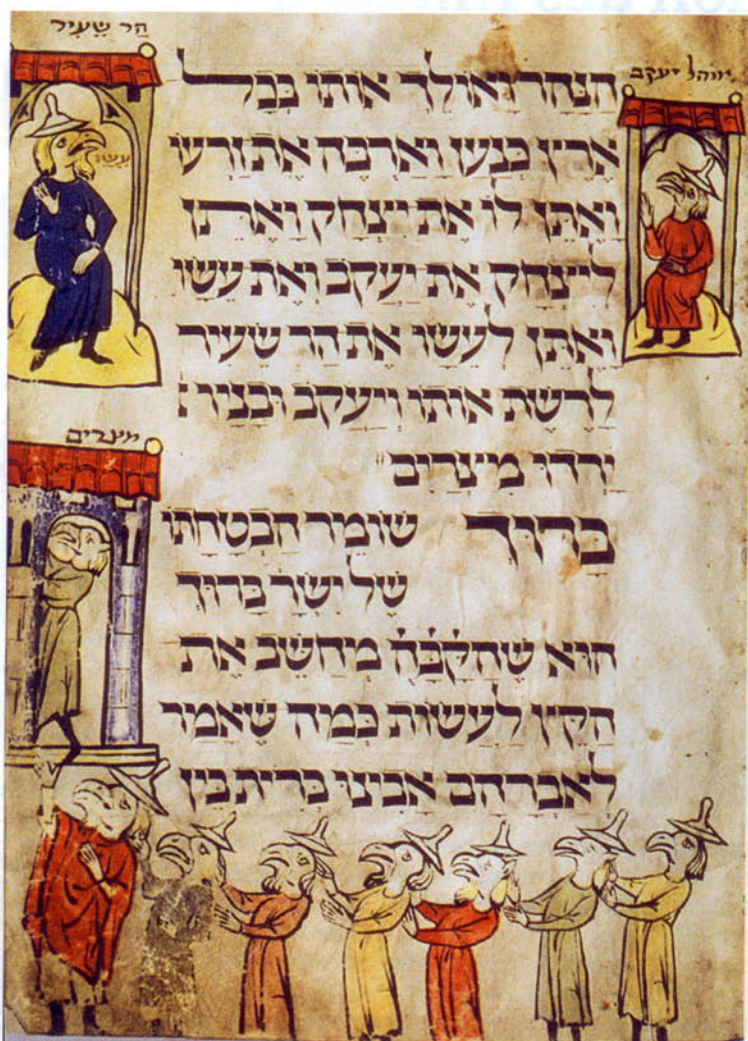 הַר שֵׂעִיר
אוהל יעקב
עֵשָׂו
הַנָּהָר וָאוֹלֵךְ אוֹתוֹ בְּכָל
אֶרֶץ כְּנַעַן וָאַרְבֶּה אֶת זַרְעוֹ
וָאֶתֵּן לוֹ אֶת יִצְחָק וָאֶתֵּן
לְיִצְחָק אֶת יַעֲקֹב וְאֶת עֵשָׂו
וָאֶתֵּן לְעֵשָׂו אֶת הַר שֵׂעִיר
לָרֶשֶׁת אוֹתוֹ וְיַעֲקֹב וּבָנָיו
יָרְדוּ מִצְרָיִם
מצרים
בָּרוּךְ שׁוֹמֵר הַבְטָחָתוֹ
שֶׁל יִשְׂרָ בָּרוּךְ
הוּא שֶׁהַקָּבָּהּ מְחַשֵּׁב אֶת
הַקֵּץ לַעֲשׂוֹת כְּמַה שֶּׁאָמַר
לְאַבְרָהָם אָבִינוּ בִּרִית בֵּין